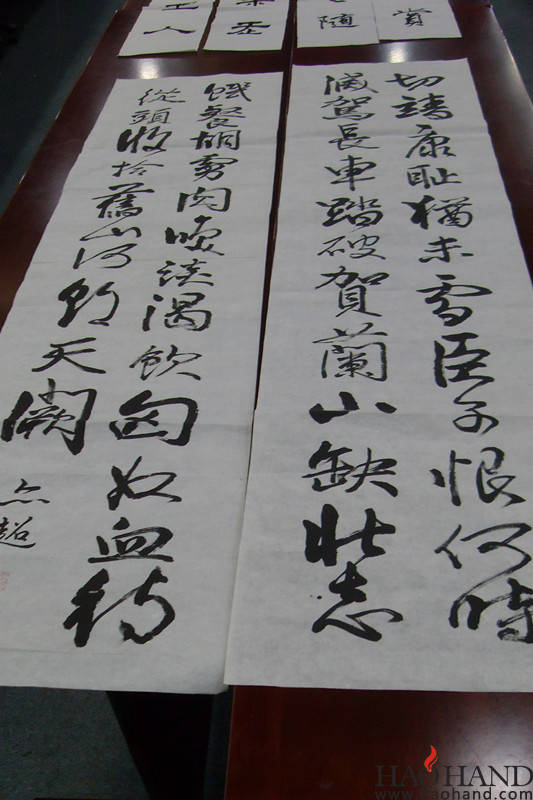 賞
隨
人
切靖康耻猶未雪臣子恨何時
滅駕長車踏破賀蘭山缺壯志
饑餐胡虜肉咲談渴飲匈奴血待
從頭收拾舊山河朝天闕
超
HAOHAND
www.haohand.com